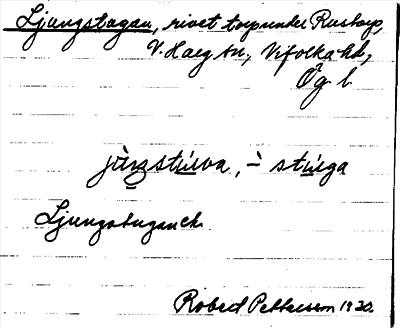 Ljungstugan, rivet torp under Rustorp,
V. Harg sn., Vifolka hd,
Ög. l.
stúga
Ljungstugan
Robert Pettersson 1930.